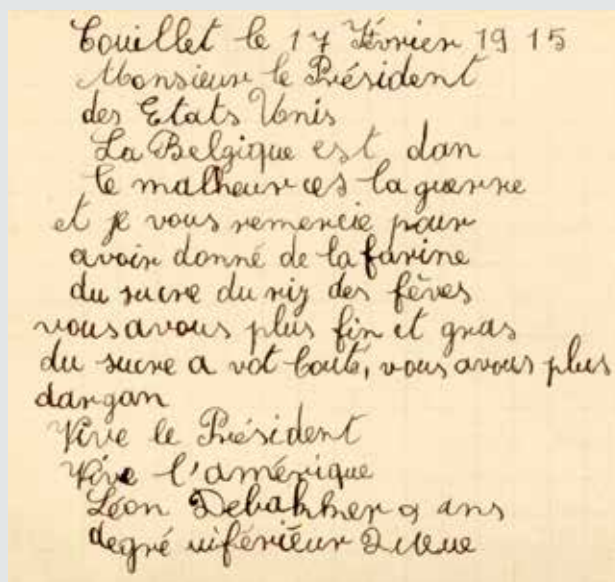 Couillet le 17 Février 1915
Monsieur le Président
des Etats Unis
La Belgique est dan
le malheur ces la guerre
et je vous remercie pour
avoir donné de la farine
du sucre du riz des fêves
vous avous plus fin et gras
du sucre a vot bouté, vous avous plus
dargan
Vive le Président
Vive l'amérique
Léon Debakker 9 ans
degré inférieur